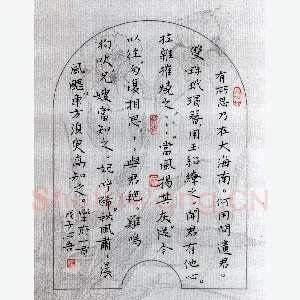 有所思乃在大海南。何用問遺君。
雙珠玳瑁簪用玉紹繚之聞君有他心。
拉雜摧燒之:。當風揚其灰。從今
以往勿復相思:與君絕。雞鳴
狗吠兄嫂當知之。妃呼狶秋風肅:晨
風颸東方須臾高知之。